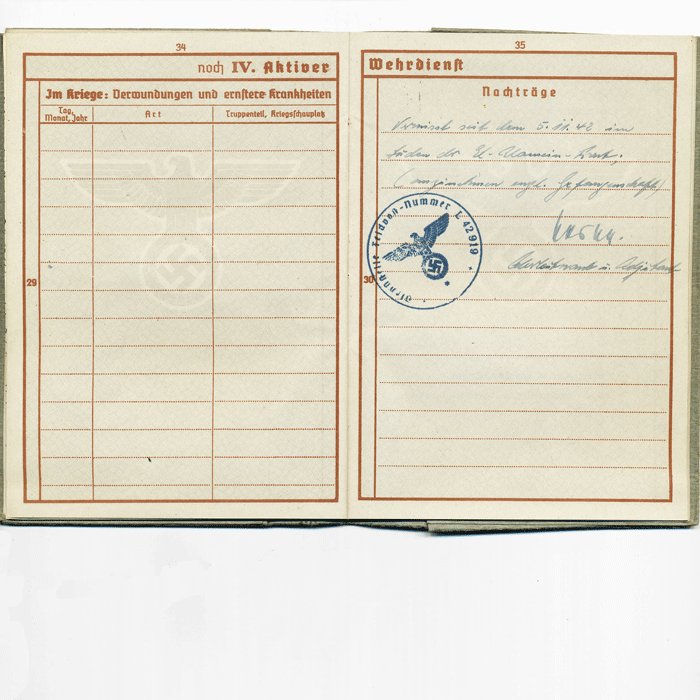 34
noch IV. Aktiver
Im Kriege: Verwundungen und ernstere Krankheiten
Tag, Monat, Jahr
Art
Truppenteil, Kriegsschauplatz
29
35
Wehrdienst
Nachträge
Vermisst seit dem 5.11.42 im
Süden der El-Alamein-Front.
(anzunehmen engl. Gefangenschaft)
Dienststelle Feldpost-Nummer L 42919
Oberleutnant u. Adjutant
30